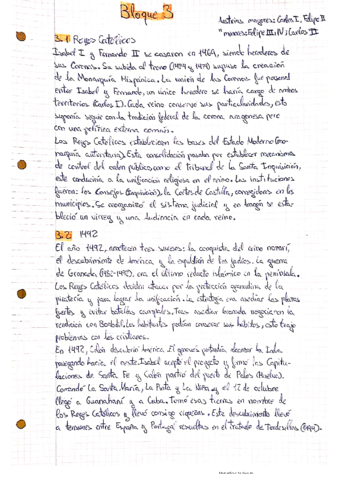 Bloque 3
Austrias mayores: Carlos I, Felipe II
" menores: Felipe III, IV; Carlos II
3.1 Reyes Católicos
Isabel I y Fernando II se casaron en 1469, siendo herederos de
sus Coronas. Su subida al trono (1474 y 1479) supuso la creación
de la Monarquía Hispánica. La unión de las Coronas fue personal
entre Isabel y Fernando, un único heredero se haría cargo de ambos
territorios (Carlos I). Cada reino conserva sus particularidades, esto
suponía seguir con la tradición federal de la corona aragonesa pero
con una política externa común.
Los Reyes Católicos establecieron las bases del Estado Moderno (mo-
narquía autoritaria). Esta consolidación pasaba por establecer mecanismos
de control del orden público como el Tribunal de la Santa Inquisición,
esto conduciría a la unificación religiosa en el reino. Las instituciones
fueron: los Consejos (Inquisición), la Cortes de Castilla, corregidores en los
municipios. Se reorganizó el sistema judicial y en Aragón se esta-
bleció un virrey y una Audiencia en cada reino.
3.2 1492
El año 1492, acontecen tres sucesos: la conquista del reino nazarí,
el descubrimiento de América, y la expulsión de los judíos. La guerra
de Granada (1482-1492), era el último reducto islámico en la península.
Los Reyes Católicos decidían atacar por la protección granadina de la
piratería y para lograr la unificación. La estrategia era asediar las plazas
fuertes y evitar batallas campales. Tras asediar Granada negociaron la
rendición con Boabdil. Los habitantes podían conservar sus hábitos, esto trajo
problemas con los cristianos.
En 1492, Colón descubrió América. El genovés pretendía
navegando hacia el oeste. Isabel aceptó el proyecto y firmó las Capitu-
laciones de Santa Fe y Colón partió del puerto de Palos (Huelva).
Comandó La Santa María, La Pinta y La Niña, y el 12 de octubre
llegó a Guanahaní y a Cuba. Tomó esas tierras en nombre de
los Reyes Católicos y llevó consigo riquezas. Este descubrimiento llevó
a tensiones entre España y Portugal resueltas en el tratado de Tordesillas (1494).